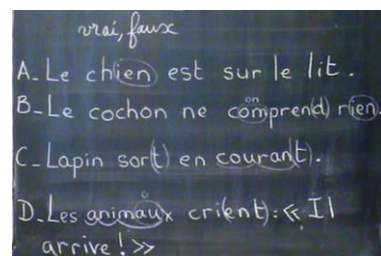 vrai, faux
A_Le chien est sur le lit.
on
B_Le cochon ne comprend) rien.
C_Lapin sor(t) en couran(t).
o
D_Les animaux crient): « Il
arrive ! »